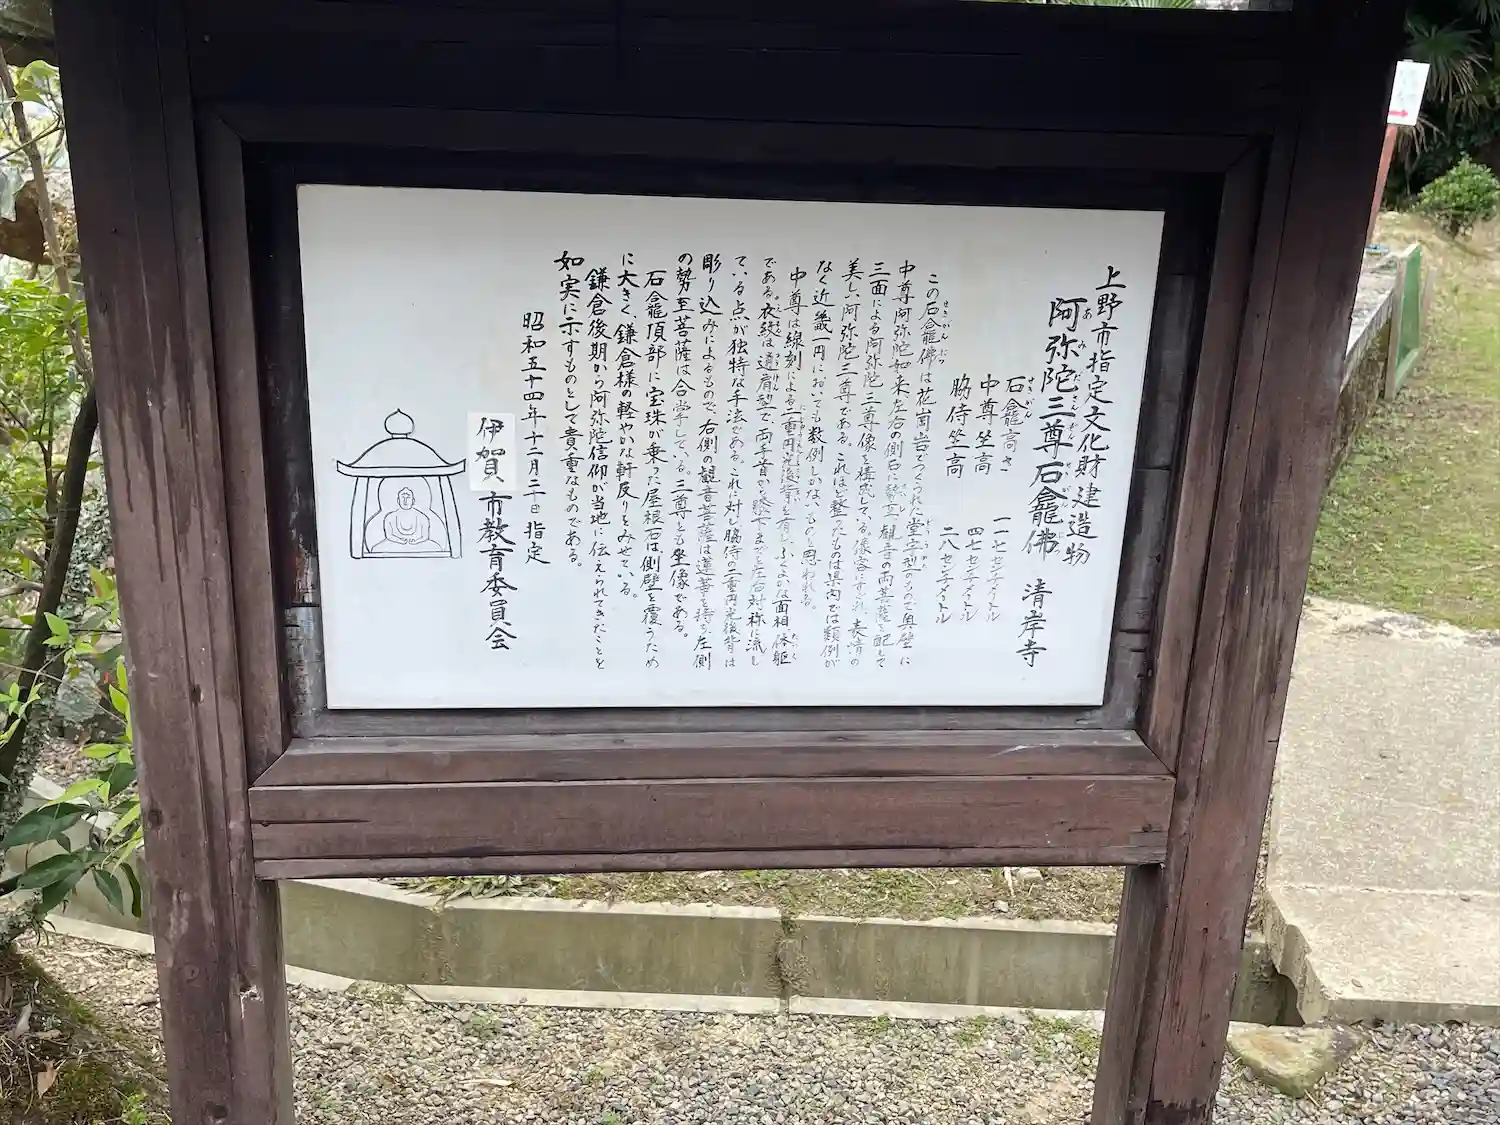 上野市指定文化財建造物
阿弥陀三尊石龕佛 清岸寺
石龕高さ 一一七センチメートル
中尊坐高 四七センチメートル
脇侍坐高 二八センチメートル
この石龕佛は花崗岩でつくられた堂宇型のもので奥壁に
中尊阿弥陀如来左右の側石に勢至、観音の両菩薩を配して
三面による阿弥陀三尊像を構成している。像容にすぐれ、表情の
美しい阿弥陀三尊である。これほど整ったものは県内では類例が
なく近畿一円においても数例しかないものと思われる。
中尊は線刻による二重円光後背を有し、ふくよかな面相体躯
である。衣紋は通肩型で両手首から膝下までを左右対称に流し
ている点が独特な手法である。これに対し脇侍の二重円光後背は
彫り込みによるもので、右側の観音菩薩は蓮華を持ち左側
の勢至菩薩は合掌している。三尊とも坐像である。
石龕頂部に宝珠が乗った屋根石は側壁を覆うため
に大きく、鎌倉様の軽やかな軒反りをみせている。
鎌倉後期から阿弥陀信仰が当地に伝えられてきたことを
如実に示すものとして貴重なものである。
昭和五十四年十二月二十日 指定
伊賀市教育委員会